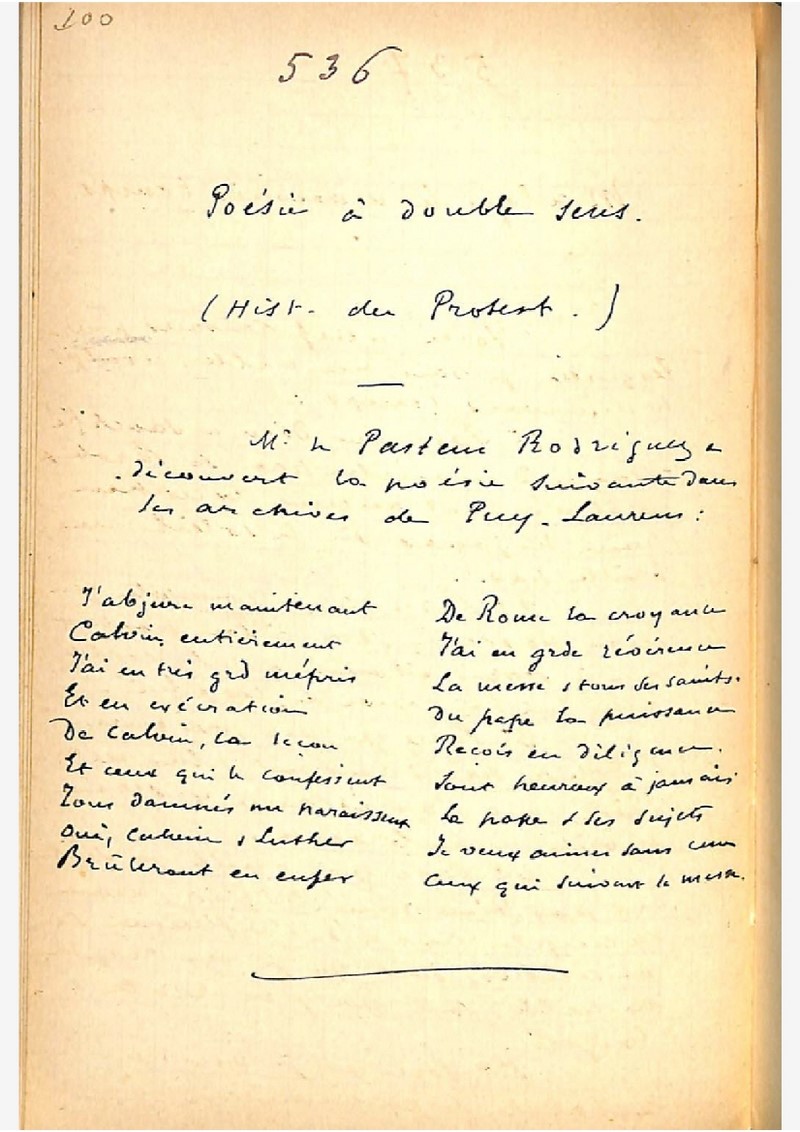 100
536
Poésie à double sens.
(Hist. du Protest.)
Mr le Pasteur Rodriguez a
découvert la poésie suivante dans
les archives de Puy-Laurens :
J'abjure maintenant
Calvin entièrement
J'ai en très grd mépris
Et en exécration
De Calvin, la leçon
Et ceux qui le confessent
Tous damnés me paraissent
Oui, Calvin & Luther
Brûleront en enfer
De Rome la croyance
J'ai en grde révérence
La messe & tous les saints.
Du pape la puissance
Reçois en diligence.
Sont heureux à jamais
Le pape & ses sujets
Je veux aimer sans cesse
Ceux qui suivent la messe.